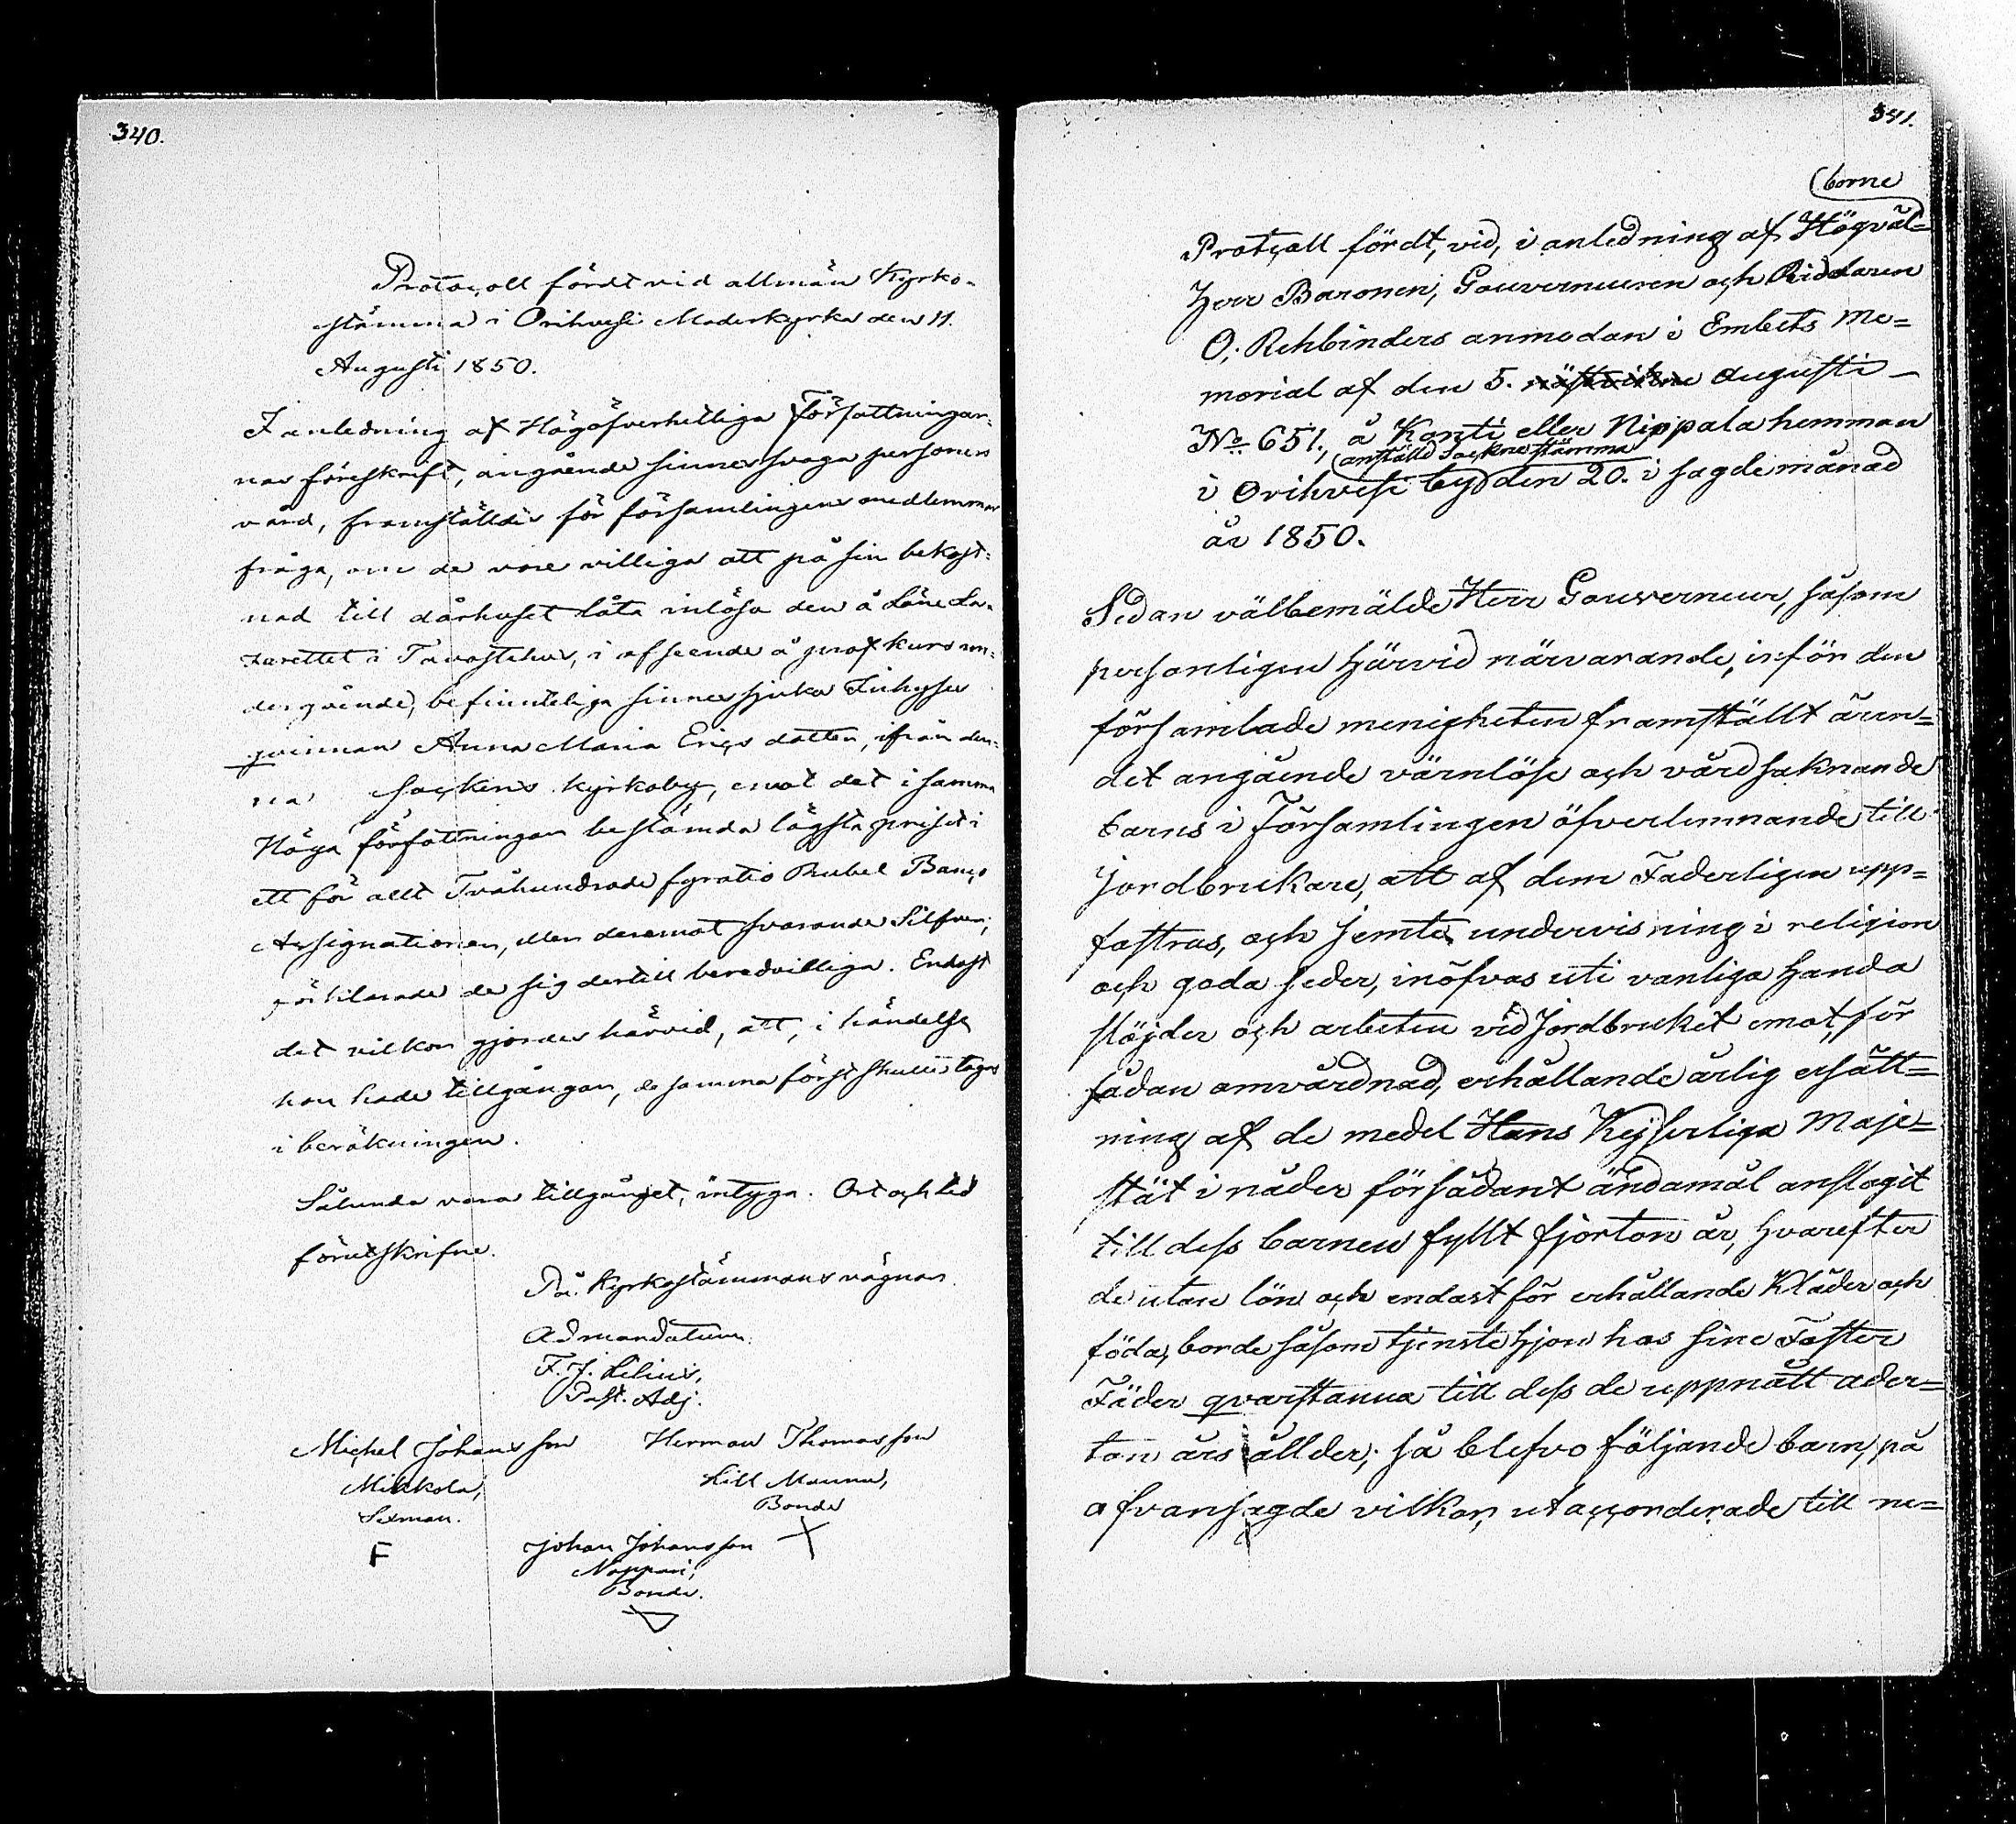 340.
Protocoll fördt vid allmän Kyrko-
stämma i Orihvesi Moderkyrka den 11.
Augusti 1850.
I anledning af Högöfverhetliga Författningar-
nas föreskrift, angående sinnessvaga personers
vård, framställdes för församlingens medlemmar
fråga, om de vore villiga att på sin bekost-
nad till dårhuset låta inlösa den å Läne La-
zarettet i Tavastehus, i afseende å profkurs un-
dergående, befinteliga sinnessjuka Inhyses
qvinnan Anna Maria Erics dotter, ifrån den-
na Sockens kyrkoby, emot det i samma
Höga författningar bestämda lägsta priset i
ett för allt Tvåhundrade fyratio Rubel Banco
Assignationer, eller deremot svarande Silfver;
förklarade de sig dertill beredvilliga. Endast
det vilkor gjordes härvid, att, i händelse
hon hade tillgångar, de samma först skulle tagas
i beräkningen.
Sålunda vara tillgånget, intyga. Ort och tid
förutskrifne.
På Kyrkostämmans vägnar
Ad mandatum
F. J. Lilius,
Past. Adj.
Michel Johansson Herman Thomasson
Mikkola, Lill Mannu,
Sexman. Bonde
F Johan Johansson X
Noppari,
Bonde.
341.
(borne
Protocoll fördt, vid, i anledning af Högväl-
Herr Baronen, Gouverneuren och Riddaren
O. Rehbinders anmodan i Embets Me-
morial af den 5. nästvikne Augusti
No 651., å Konti eller Nippala hemman
(anställd Sockne stämma
i Orihvesi by den 20. i sagde månad
år 1850.
Sedan välbemälde Herr Gouverneur, såsom
personligen härvid närvarande, inför den
församlade menigheten framställt ären-
det angående värnlöse och vårdsaknande
barns i Församlingen öfverlemnande till
Jordbrukare, att af dem Faderligen upp-
fostras, och jemte undervisning i religion
och goda seder, inöfvas uti vanliga handa
slöjder och arbeten vid Jordbruket emot, för
sådan omvårdnad, erhållande årlig ersätt-
ning af de medel Hans Kejserliga Maje-
stät i nåder för sådant ändamål anslagit
till dess barnen fyllt fjorton år, hvarefter
de utan lön och endast för erhållande Kläder och
föda, borde såsom tjenstehjon hos sine Foster
Fäder qvarstanna till dess de uppnått ader-
ton års ållder; så blefvo följande barn, på
ofvansagde vilkor, utaccorderade till ne-